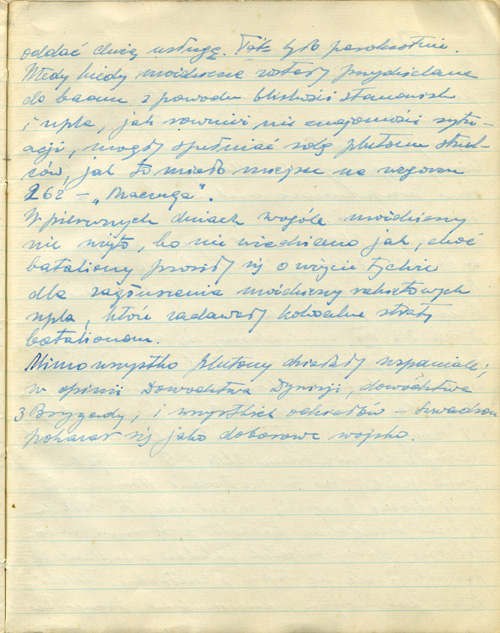 oddać dużą usługę. Tak było parokrotnie.
Wtedy kiedy moździerze zostały przydzielane
do baonu z powodu bliskości stanowisk
i npla, jak również nie znajomości sytu-
acji, mogły spełniać rolę plutonu strzel-
ców, jak to miało miejsce na wzgórzu
262 – „Maciuga".
W pierwszych dniach wogóle moździerzy
nie użyto, bo nie wiedziano jak, choć
bataliony prosiły się o użycie tychże
dla zagłuszenia moździerzy rakietowych
npla, które zadawały kolosalne straty
batalionom.
Mimo wszystko plutony działały wspaniale;
w opinii Dowództwa Dywizji, dowództwa
3 Brygady, i wszystkich oddziałów – Szwadron
pokazał się jako doborowe wojsko.